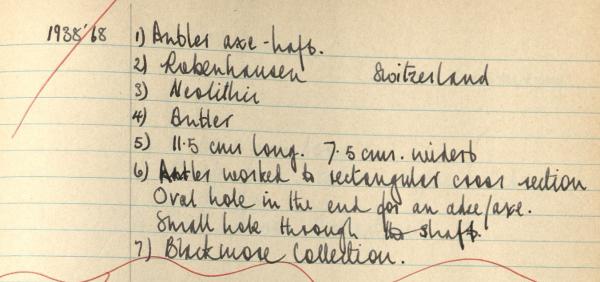 1938'68 1) Antler axe-haft.
2) Robenhausen Switzerland
3) Neolithic
4) Antler
5) 11.5 cms long. 7.5 cms. widest
6) Antler worked to rectangular cross section
Oval hole in the end for an adze/axe.
Small hole through shaft.
7) Blackmore Collection.